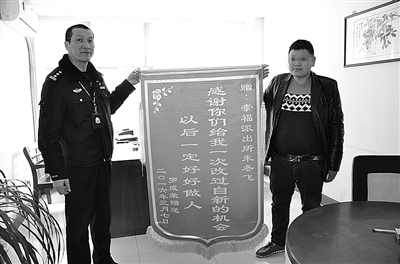 赠：崇福派出所朱冬飞
感谢你们给我一次改过自新的机会
以后一定好好做人
罗成荣赠送
二〇一六年三月七日